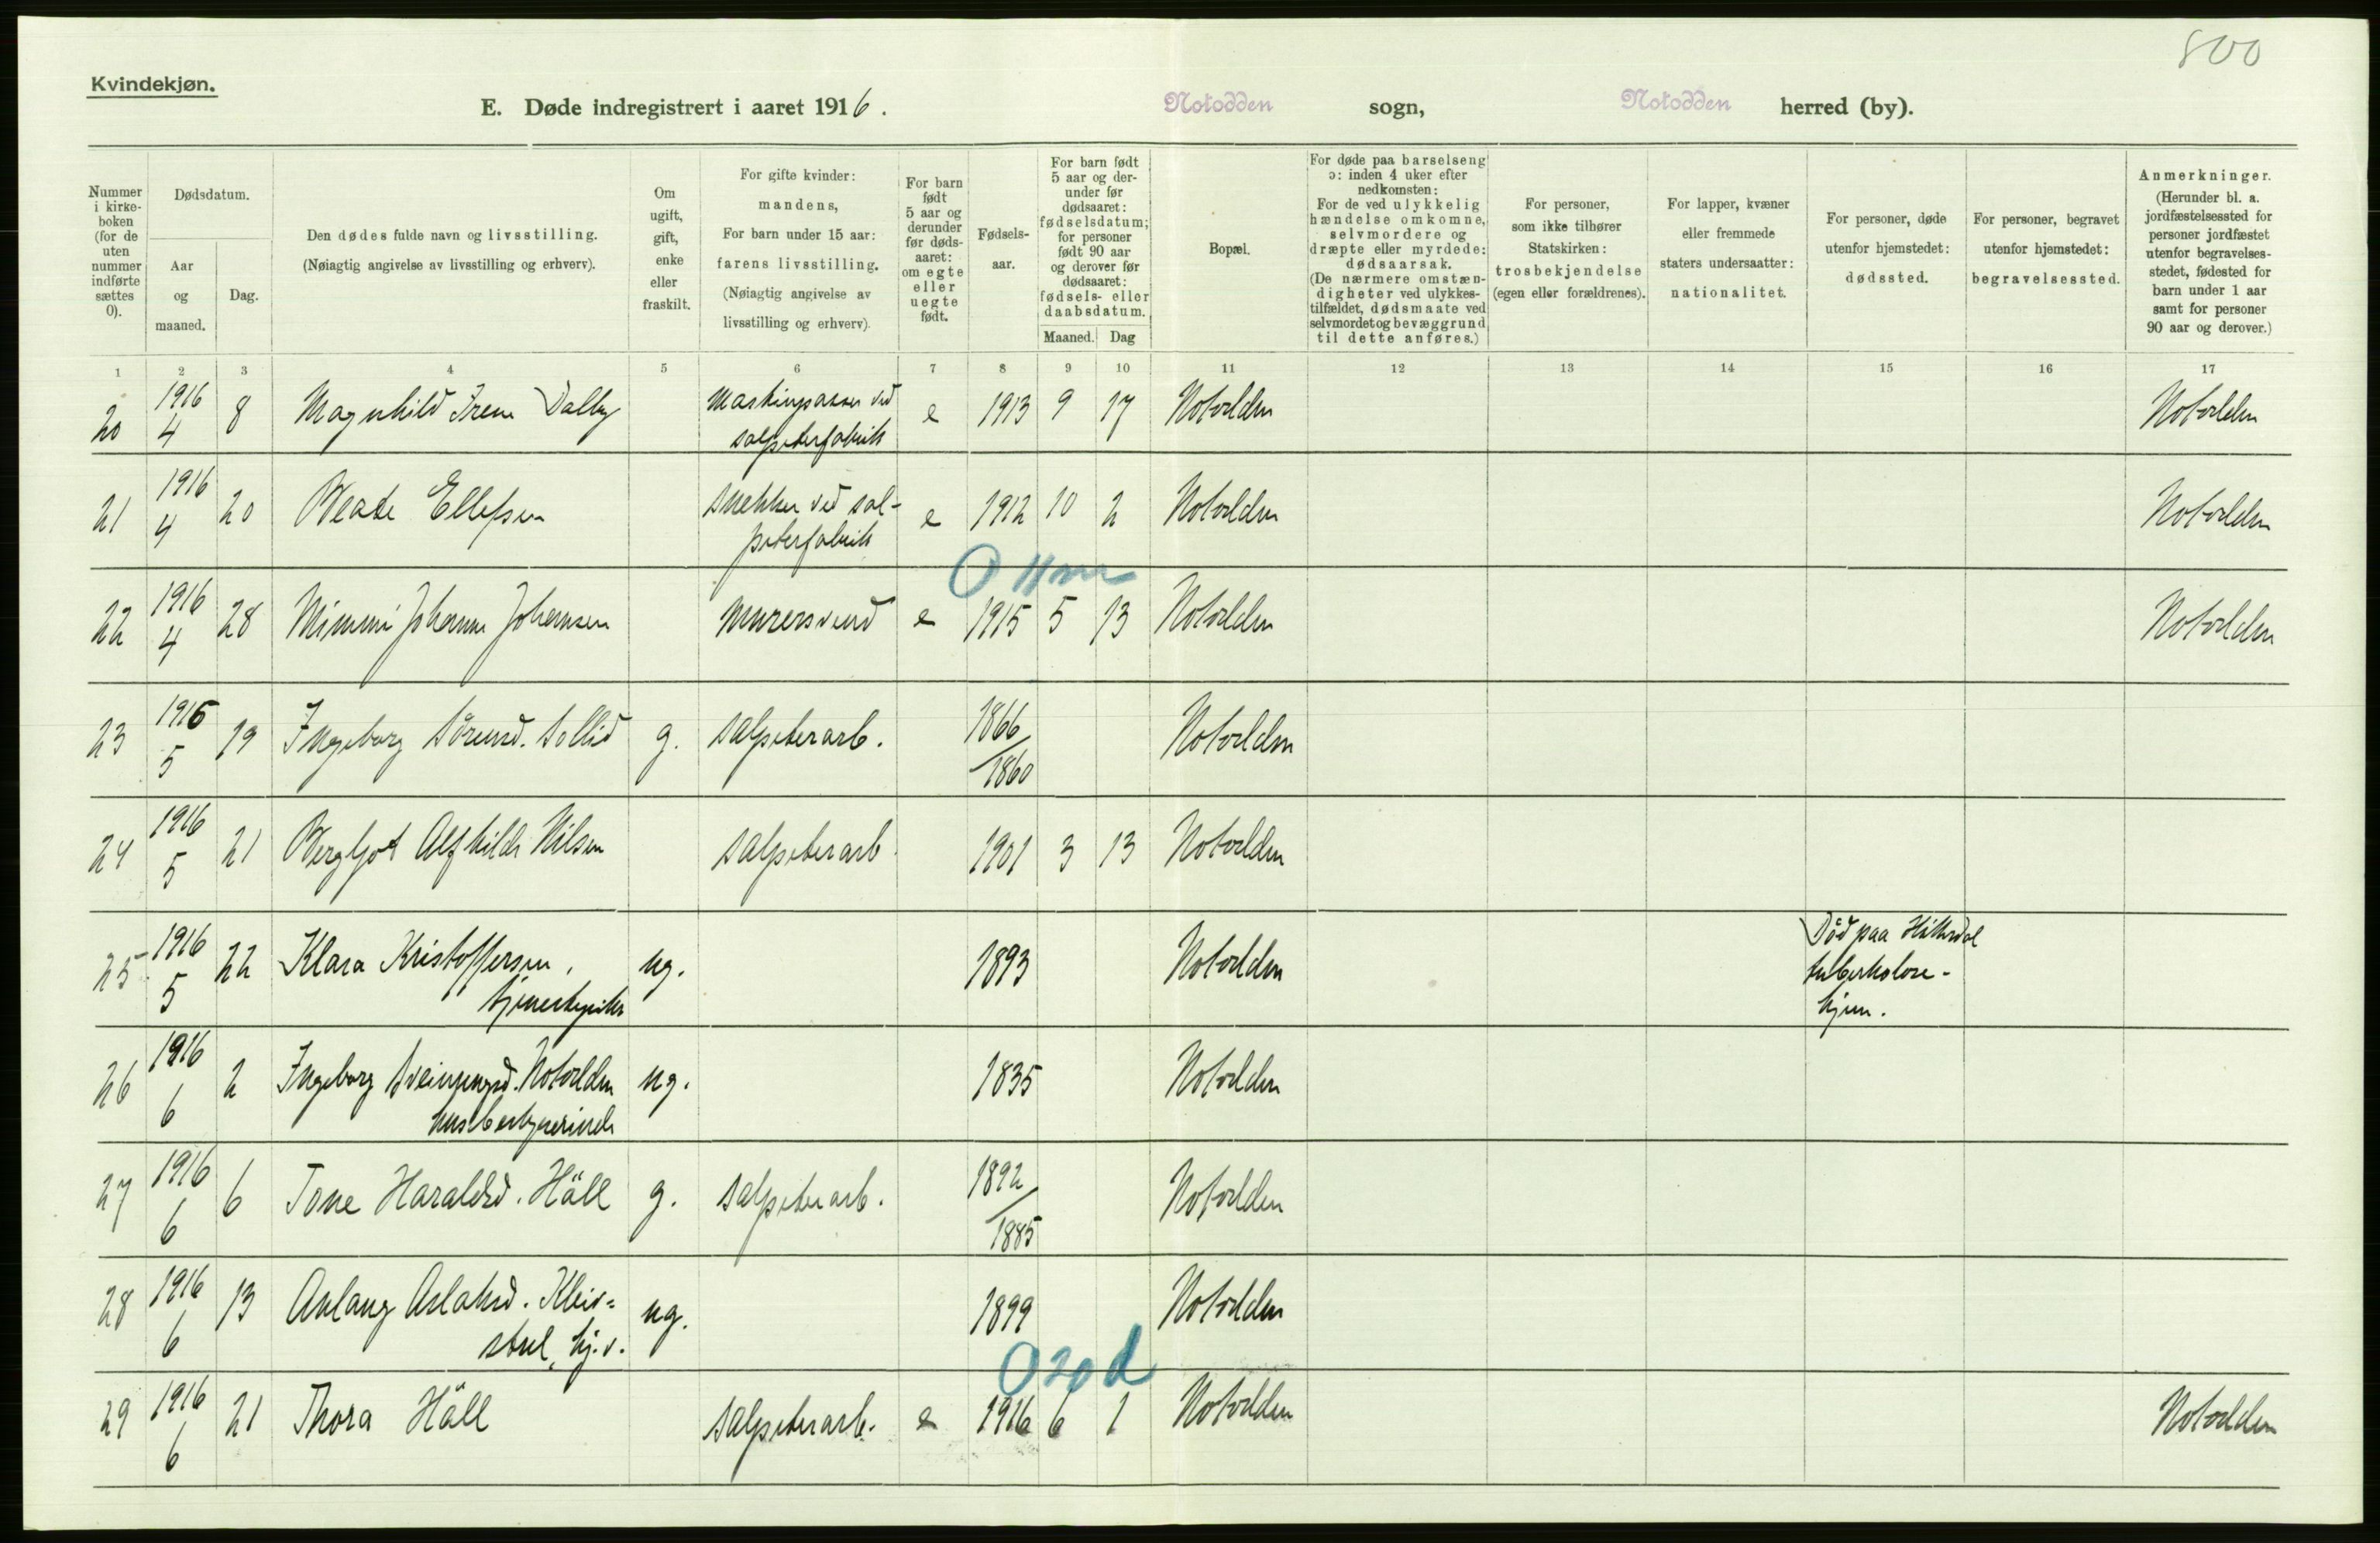 800
Kvindekjøn.
E. Døde indregistrert i aaret 1916. Notodden sogn, Notodden herred (by).
Nummer i kirke-boken (for de uten nummer indførte sættes 0).
Dødsdatum.
Aar og maaned.
Dag.
Den dødes fulde navn og livsstilling.
(Nøiagtig angivelse av livsstilling og erhverv).
Om ugift, gift, enke eller fraskilt.
For gifte kvinder: mandens,
For barn under 15 aar: farens livsstilling.
(Nøiagtig angivelse av livsstilling og erhverv).
For barn født 5 aar og derunder før døds-aaret: om egte eller uegte født.
Fødsels-aar.
For barn født 5 aar og der-under før dødsaaret: fødselsdatum; for personer født 90 aar og derover før dødsaaret: fødsels- eller daabsdatum.
Maaned. Dag
Bopæl.
For døde paa barselseng ɔ: inden 4 uker efter nedkomsten:
For de ved ulykkelig hændelse omkomne, selvmordere og dræpte eller myrdede: dødsaarsak.
(De nærmere omstæn-digheter ved ulykkes-tilfældet, dødsmaate ved selvmordet og bevæggrund til dette anføres.)
For personer, som ikke tilhører Statskirken: trosbekjendelse (egen eller forældrenes).
For lapper, kvæner eller fremmede staters undersaatter: nationalitet.
For personer, døde utenfor hjemstedet: dødssted.
For personer, begravet utenfor hjemstedet: begravelsessted.
Anmerkninger.
(Herunder bl. a. jordfæstelsessted for personer jordfæstet utenfor begravelses-stedet, fødested for barn under 1 aar samt for personer 90 aar og derover.)
1 2 3 4 5 6 7 8 9 10 11 12 13 14 15 16 17
20 1916 4 8 Magnhild Irene Dalby Maskinpasser ved salpeterfabrik e 1913 9 17 Notodden Notodden
21 1916 4 20 Beate Ellefsen snekker ved sal-
peterfabrik e 1912 10 2 Notodden Notodden
0 11 m
22 1916 4 28 Mimmi Johanne Johansen murersvend e 1915 5 13 Notodden Notodden
23 1916 5 19 Ingeborg Sørensd. Sollid g. salpeterarb. 1866/1860 Notodden
24 1916 5 21 Bergljot Alfhilde Nilsen salpeterarb. 1901 3 13 Notodden
25 1916 5 22 Klara Kristoffersen, tjenestepike ug. 1893 Notodden Død paa Hitterdal
tuberkolose-
hjem.
26 1916 6 2 Ingeborg Sveinungsd. Notodden
husbestyrerinde ug. 1835 Notodden
27 1916 6 6 Tone Haraldsd. Häll g. salpeterarb. 1892/1885 Notodden
28 1916 6 13 Aslaksd. Kleiv=
stul, hj.v. ug. 1899 Notodden
0 20 d
29 1916 6 21 Thora Häll salpeterarb. e 1916 6 1 Notodden Notodden